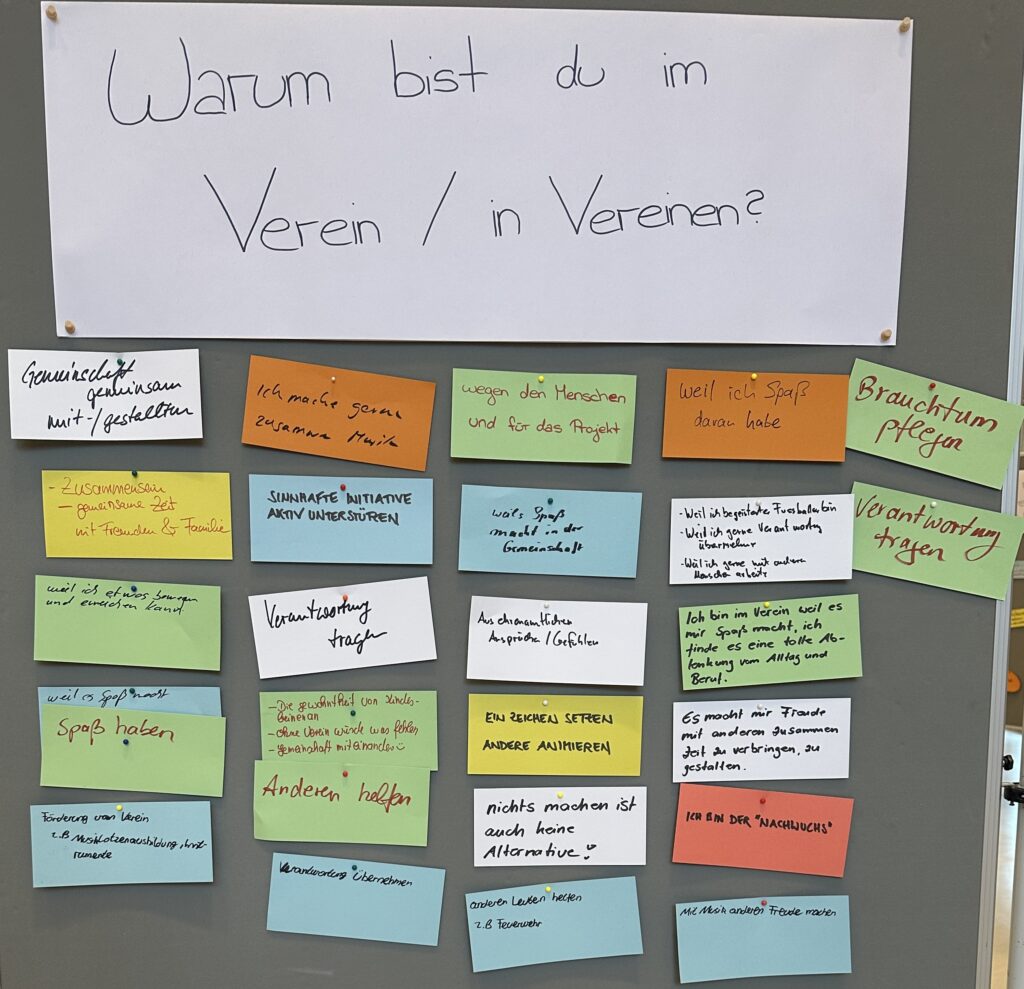 Warum bist du im
Verein / in Vereinen?
Gemeinschaft
gemeinsam
mit-/gestalten
- Zusammensein
- gemeinsame Zeit
mit Freunden & Familie
weil ich etwas bewegen
und erreichen kann.
weil es Spaß macht
Spaß haben
Förderung vom Verein
z.B Musiklotzenausbildung, Inst-
rumente
Ich mache gerne
zusammen Musik
SINNHAFTE INITIATIVE
AKTIV UNTERSTÜREN
Verantwortung
tragen
- Die gewohntheit von Kindes-
Beinen an
- ohne Verein würde was fehlen
- gemeinschaft miteinander
Anderen helfen
Verantwortung übernehmen
wegen den Menschen
und für das Projekt
weils Spaß
macht in der
Gemeinschaft
Aus ehrenamtlichen
Ansprüchen/Gefühlen
EIN ZEICHEN SETZEN
ANDERE ANIMIEREN
nichts machen ist
auch keine
Alternative
anderen Leuten helfen
z.B Feuerwehr
weil ich Spaß
daran habe
- Weil ich begeisterte Fussballer bin
- Weil ich gerne Verantwortung
übernehme
- Weil ich gerne mit anderen
Menschen arbeite
Ich bin im Verein weil es
mir Spaß macht, ich
finde es eine tolle Ab-
lenkung vom Alltag und
Beruf.
Es macht mir Freude
mit anderen zusammen
Zeit zu verbringen, zu
gestalten.
ICH BIN DER "NACHWUCHS"
Mit Musik anderen Freude machen
Brauchtum
pflegen
Verantwortung
tragen